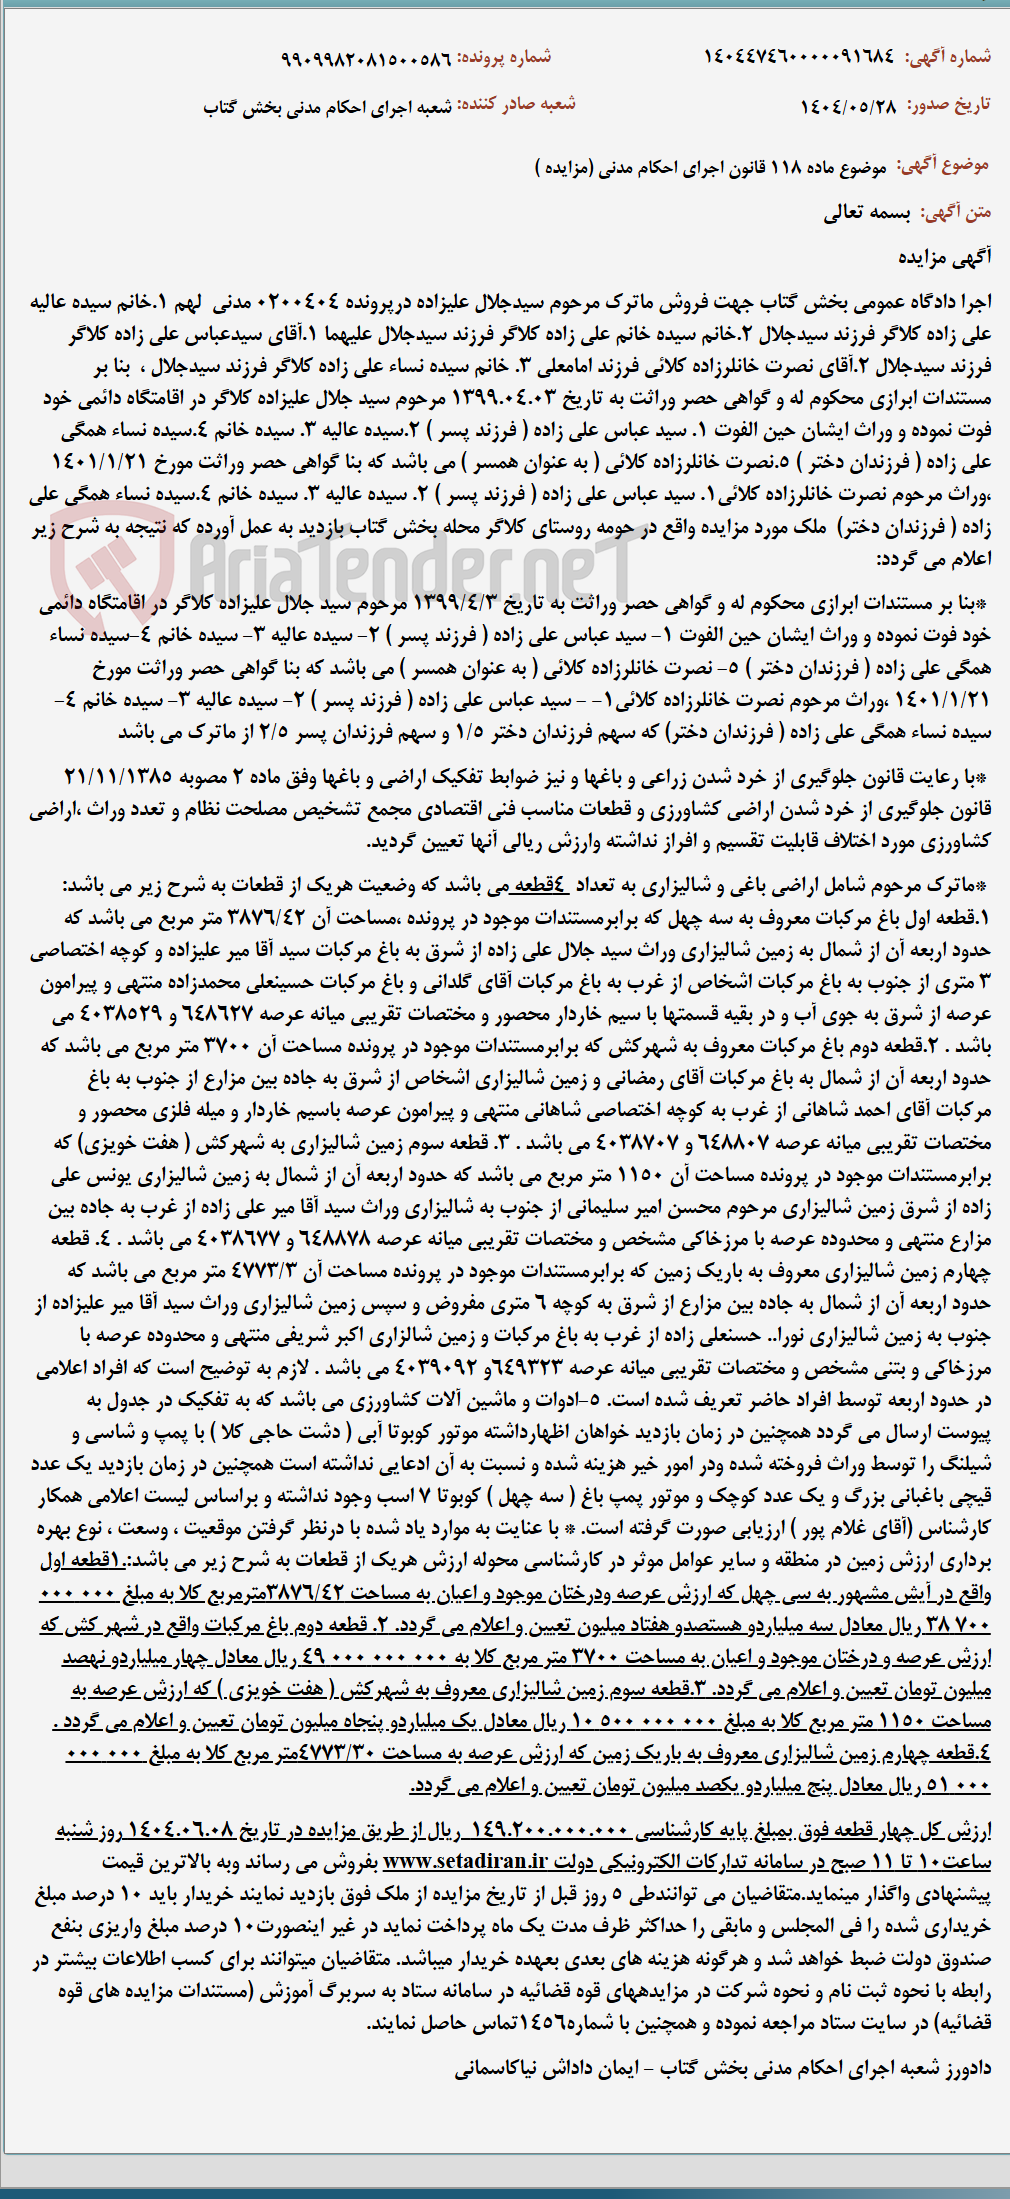 شماره آگهی: ۱۴۰۴۴۷۴۶۰۰۰۰۰۹۱۶۸۴ شماره پرونده: ۹۹۰۹۹۸۲۰۸۱۵۰۰۵۸۶
تاریخ صدور: ۱۴۰۴/۰۵/۲۸ شعبه صادر کننده: شعبه اجرای احکام مدنی بخش گتاب
موضوع آگهی: موضوع ماده ۱۱۸ قانون اجرای احکام مدنی (مزایده )
متن آگهی: بسمه تعالی
آگهی مزایده
اجرا دادگاه عمومی بخش گتاب جهت فروش ماترک مرحوم سیدجلال علیزاده درپرونده ۰۲۰۰۴۰۴ مدنی لهم ۱.خانم سیده عالیه
علی زاده کلاگر فرزند سیدجلال ۲.خانم سیده خانم علی زاده کلاگر فرزند سیدجلال علیهما ۱.آقای سیدعباس علی زاده کلاگر
فرزند سیدجلال ۲.آقای نصرت خانلرزاده کلائی فرزند امامعلی ۳. خانم سیده نساء علی زاده کلاگر فرزند سیدجلال ، بنا بر
مستندات ابرازی محکوم له و گواهی حصر وراثت به تاریخ ۱۳۹۹.۰۴.۰۳ مرحوم سید جلال علیزاده کلاگر در اقامتگاه دائمی خود
فوت نموده و وراث ایشان حین الفوت ۱. سید عباس علی زاده ( فرزند پسر ) ۲.سیده عالیه ۳. سیده خانم ۴.سیده نساء همگی
علی زاده ( فرزندان دختر ) ۵.نصرت خانلرزاده کلائی ( به عنوان همسر ) می باشد که بنا گواهی حصر وراثت مورخ ۱۴۰۱/۱/۲۱
،وراث مرحوم نصرت خانلرزاده کلائی۱. سید عباس علی زاده ( فرزند پسر ) ۲. سیده عالیه ۳. سیده خانم ۴.سیده نساء همگی علی
زاده ( فرزندان دختر) ملک مورد مزایده واقع در حومه روستای کلاگر محله بخش گتاب بازدید به عمل آورده که نتیجه به شرح زیر
اعلام می گردد:
AriaTender.neT
*بنا بر مستندات ابرازی محکوم له و گواهی حصر وراثت به تاریخ ۱۳۹۹/۴/۳ مرحوم سید جلال علیزاده کلاگر در اقامتگاه دائمی
خود فوت نموده و وراث ایشان حین الفوت ۱- سید عباس علی زاده ( فرزند پسر ) ۲- سیده عالیه ۳- سیده خانم ۴-سیده نساء
همگی علی زاده ( فرزندان دختر ) ۵- نصرت خانلرزاده کلائی ( به عنوان همسر ) می باشد که بنا گواهی حصر وراثت مورخ
۱۴۰۱/۱/۲۱ ،وراث مرحوم نصرت خانلرزاده کلائی۱- - سید عباس علی زاده ( فرزند پسر ) ۲- سیده عالیه ۳- سیده خانم ۴-
سیده نساء همگی علی زاده ( فرزندان دختر) که سهم فرزندان دختر ۱/۵ و سهم فرزندان پسر ۲/۵ از ماترک می باشد
*با رعایت قانون جلوگیری از خرد شدن زراعی و باغها و نیز ضوابط تفکیک اراضی و باغها وفق ماده ۲ مصوبه ۲۱/۱۱/۱۳۸۵
قانون جلوگیری از خرد شدن اراضی کشاورزی و قطعات مناسب فنی اقتصادی مجمع تشخیص مصلحت نظام و تعدد وراث ،اراضی
کشاورزی مورد اختلاف قابلیت تقسیم و افراز نداشته وارزش ریالی آنها تعیین گردید.
*ماترک مرحوم شامل اراضی باغی و شالیزاری به تعداد ۴قطعه می باشد که وضعیت هریک از قطعات به شرح زیر می باشد:
۱.قطعه اول باغ مرکبات معروف به سه چهل که برابرمستندات موجود در پرونده ،مساحت آن ۳۸۷۶/۴۲ متر مربع می باشد که
حدود اربعه آن از شمال به زمین شالیزاری وراث سید جلال علی زاده از شرق به باغ مرکبات سید آقا میر علیزاده و کوچه اختصاصی
۳ متری از جنوب به باغ مرکبات اشخاص از غرب به باغ مرکبات آقای گلدانی و باغ مرکبات حسینعلی محمدزاده منتهی و پیرامون
عرصه از شرق به جوی آب و در بقیه قسمتها با سیم خاردار محصور و مختصات تقریبی میانه عرصه ۶۴۸۶۲۷ و ۴۰۳۸۵۲۹ می
باشد . ۲.قطعه دوم باغ مرکبات معروف به شهرکش که برابرمستندات موجود در پرونده مساحت آن ۳۷۰۰ متر مربع می باشد که
حدود اربعه آن از شمال به باغ مرکبات آقای رمضانی و زمین شالیزاری اشخاص از شرق به جاده بین مزارع از جنوب به باغ
مرکبات آقای احمد شاهانی از غرب به کوچه اختصاصی شاهانی منتهی و پیرامون عرصه باسیم خاردار و میله فلزی محصور و
مختصات تقریبی میانه عرصه ۶۴۸۸۰۷ و ۴۰۳۸۷۰۷ می باشد . ۳. قطعه سوم زمین شالیزاری به شهرکش ( هفت خویزی) که
برابرمستندات موجود در پرونده مساحت آن ۱۱۵۰ متر مربع می باشد که حدود اربعه آن از شمال به زمین شالیزاری یونس علی
زاده از شرق زمین شالیزاری مرحوم محسن امیر سلیمانی از جنوب به شالیزاری وراث سید آقا میر علی زاده از غرب به جاده بین
مزارع منتهی و محدوده عرصه با مرزخاکی مشخص و مختصات تقریبی میانه عرصه ۶۴۸۸۷۸ و ۴۰۳۸۶۷۷ می باشد . ۴. قطعه
چهارم زمین شالیزاری معروف به باریک زمین که برابرمستندات موجود در پرونده مساحت آن ۴۷۷۳/۳ متر مربع می باشد که
حدود اربعه آن از شمال به جاده بین مزارع از شرق به کوچه ۶ متری مفروض و سپس زمین شالیزاری وراث سید آقا میر علیزاده از
جنوب به زمین شالیزاری نورا.. حسنعلی زاده از غرب به باغ مرکبات و زمین شالزاری اکبر شریفی منتهی و محدوده عرصه با
مرزخاکی و بتنی مشخص و مختصات تقریبی میانه عرصه ۶۴۹۳۲۳و ۴۰۳۹۰۹۲ می باشد . لازم به توضیح است که افراد اعلامی
در حدود اربعه توسط افراد حاضر تعریف شده است. ۵-ادوات و ماشین آلات کشاورزی می باشد که به تفکیک در جدول به
پیوست ارسال می گردد همچنین در زمان بازدید خواهان اظهارداشته موتور کوبوتا آبی ( دشت حاجی کلا ) با پمپ و شاسی و
شیلنگ را توسط وراث فروخته شده ودر امور خیر هزینه شده و نسبت به آن ادعایی نداشته است همچنین در زمان بازدید یک عدد
قیچی باغبانی بزرگ و یک عدد کوچک و موتور پمپ باغ ( سه چهل ) کوبوتا ۷ اسب وجود نداشته و براساس لیست اعلامی همکار
کارشناس (آقای غلام پور ) ارزیابی صورت گرفته است. * با عنایت به موارد یاد شده با درنظر گرفتن موقعیت ، وسعت ، نوع بهره
برداری ارزش زمین در منطقه و سایر عوامل موثر در کارشناسی محوله ارزش هریک از قطعات به شرح زیر می باشد:.۱قطعه اول
واقع در آیش مشهور به سی چهل که ارزش عرصه ودرختان موجود و اعیان به مساحت ۳۸۷۶/۴۲مترمربع کلا به مبلغ ۰۰۰ ۰۰۰
۳۸ ۷۰۰ ریال معادل سه میلیاردو هستصدو هفتاد میلیون تعیین و اعلام می گردد. ۲. قطعه دوم باغ مرکبات واقع در شهر کش که
ارزش عرصه و درختان موجود و اعیان به مساحت ۳۷۰۰ متر مربع کلا به ۰۰۰ ۰۰۰ ۰۰۰ ۴۹ ریال معادل چهار میلیاردو نهصد
میلیون تومان تعیین و اعلام می گردد. ۳.قطعه سوم زمین شالیزاری معروف به شهرکش ( هفت خویزی ) که ارزش عرصه به
مساحت ۱۱۵۰ متر مربع کلا به مبلغ ۰۰۰ ۰۰۰ ۵۰۰ ۱۰ ریال معادل یک میلیاردو پنجاه میلیون تومان تعیین و اعلام می گردد .
۴.قطعه چهارم زمین شالیزاری معروف به باریک زمین که ارزش عرصه به مساحت ۴۷۷۳/۳۰متر مربع کلا به مبلغ ۰۰۰ ۰۰۰
۵۱ ۰۰۰ ریال معادل پنج میلیاردو یکصد میلیون تومان تعیین و اعلام می گردد.
ارزش کل چهار قطعه فوق بمبلغ پایه کارشناسی ۱۴۹.۲۰۰.۰۰۰.۰۰۰ ریال از طریق مزایده در تاریخ ۱۴۰۴.۰۶.۰۸ روز شنبه
ساعت۱۰ تا ۱۱ صبح در سامانه تدارکات الکترونیکی دولت www.setadiran.ir بفروش می رساند وبه بالاترین قیمت
پیشنهادی واگذار مینماید.متقاضیان می توانندطی ۵ روز قبل از تاریخ مزایده از ملک فوق بازدید نمایند خریدار باید ۱۰ درصد مبلغ
خریداری شده را فی المجلس و مابقی را حداکثر ظرف مدت یک ماه پرداخت نماید در غیر اینصورت۱۰ درصد مبلغ واریزی بنفع
صندوق دولت ضبط خواهد شد و هرگونه هزینه های بعدی بعهده خریدار میباشد. متقاضیان میتوانند برای کسب اطلاعات بیشتر در
رابطه با نحوه ثبت نام و نحوه شرکت در مزایدههای قوه قضائیه در سامانه ستاد به سربرگ آموزش (مستندات مزایده های قوه
قضائیه) در سایت ستاد مراجعه نموده و همچنین با شماره۱۴۵۶تماس حاصل نمایند.
دادورز شعبه اجرای احکام مدنی بخش گتاب - ایمان داداش نیاکاسمانی